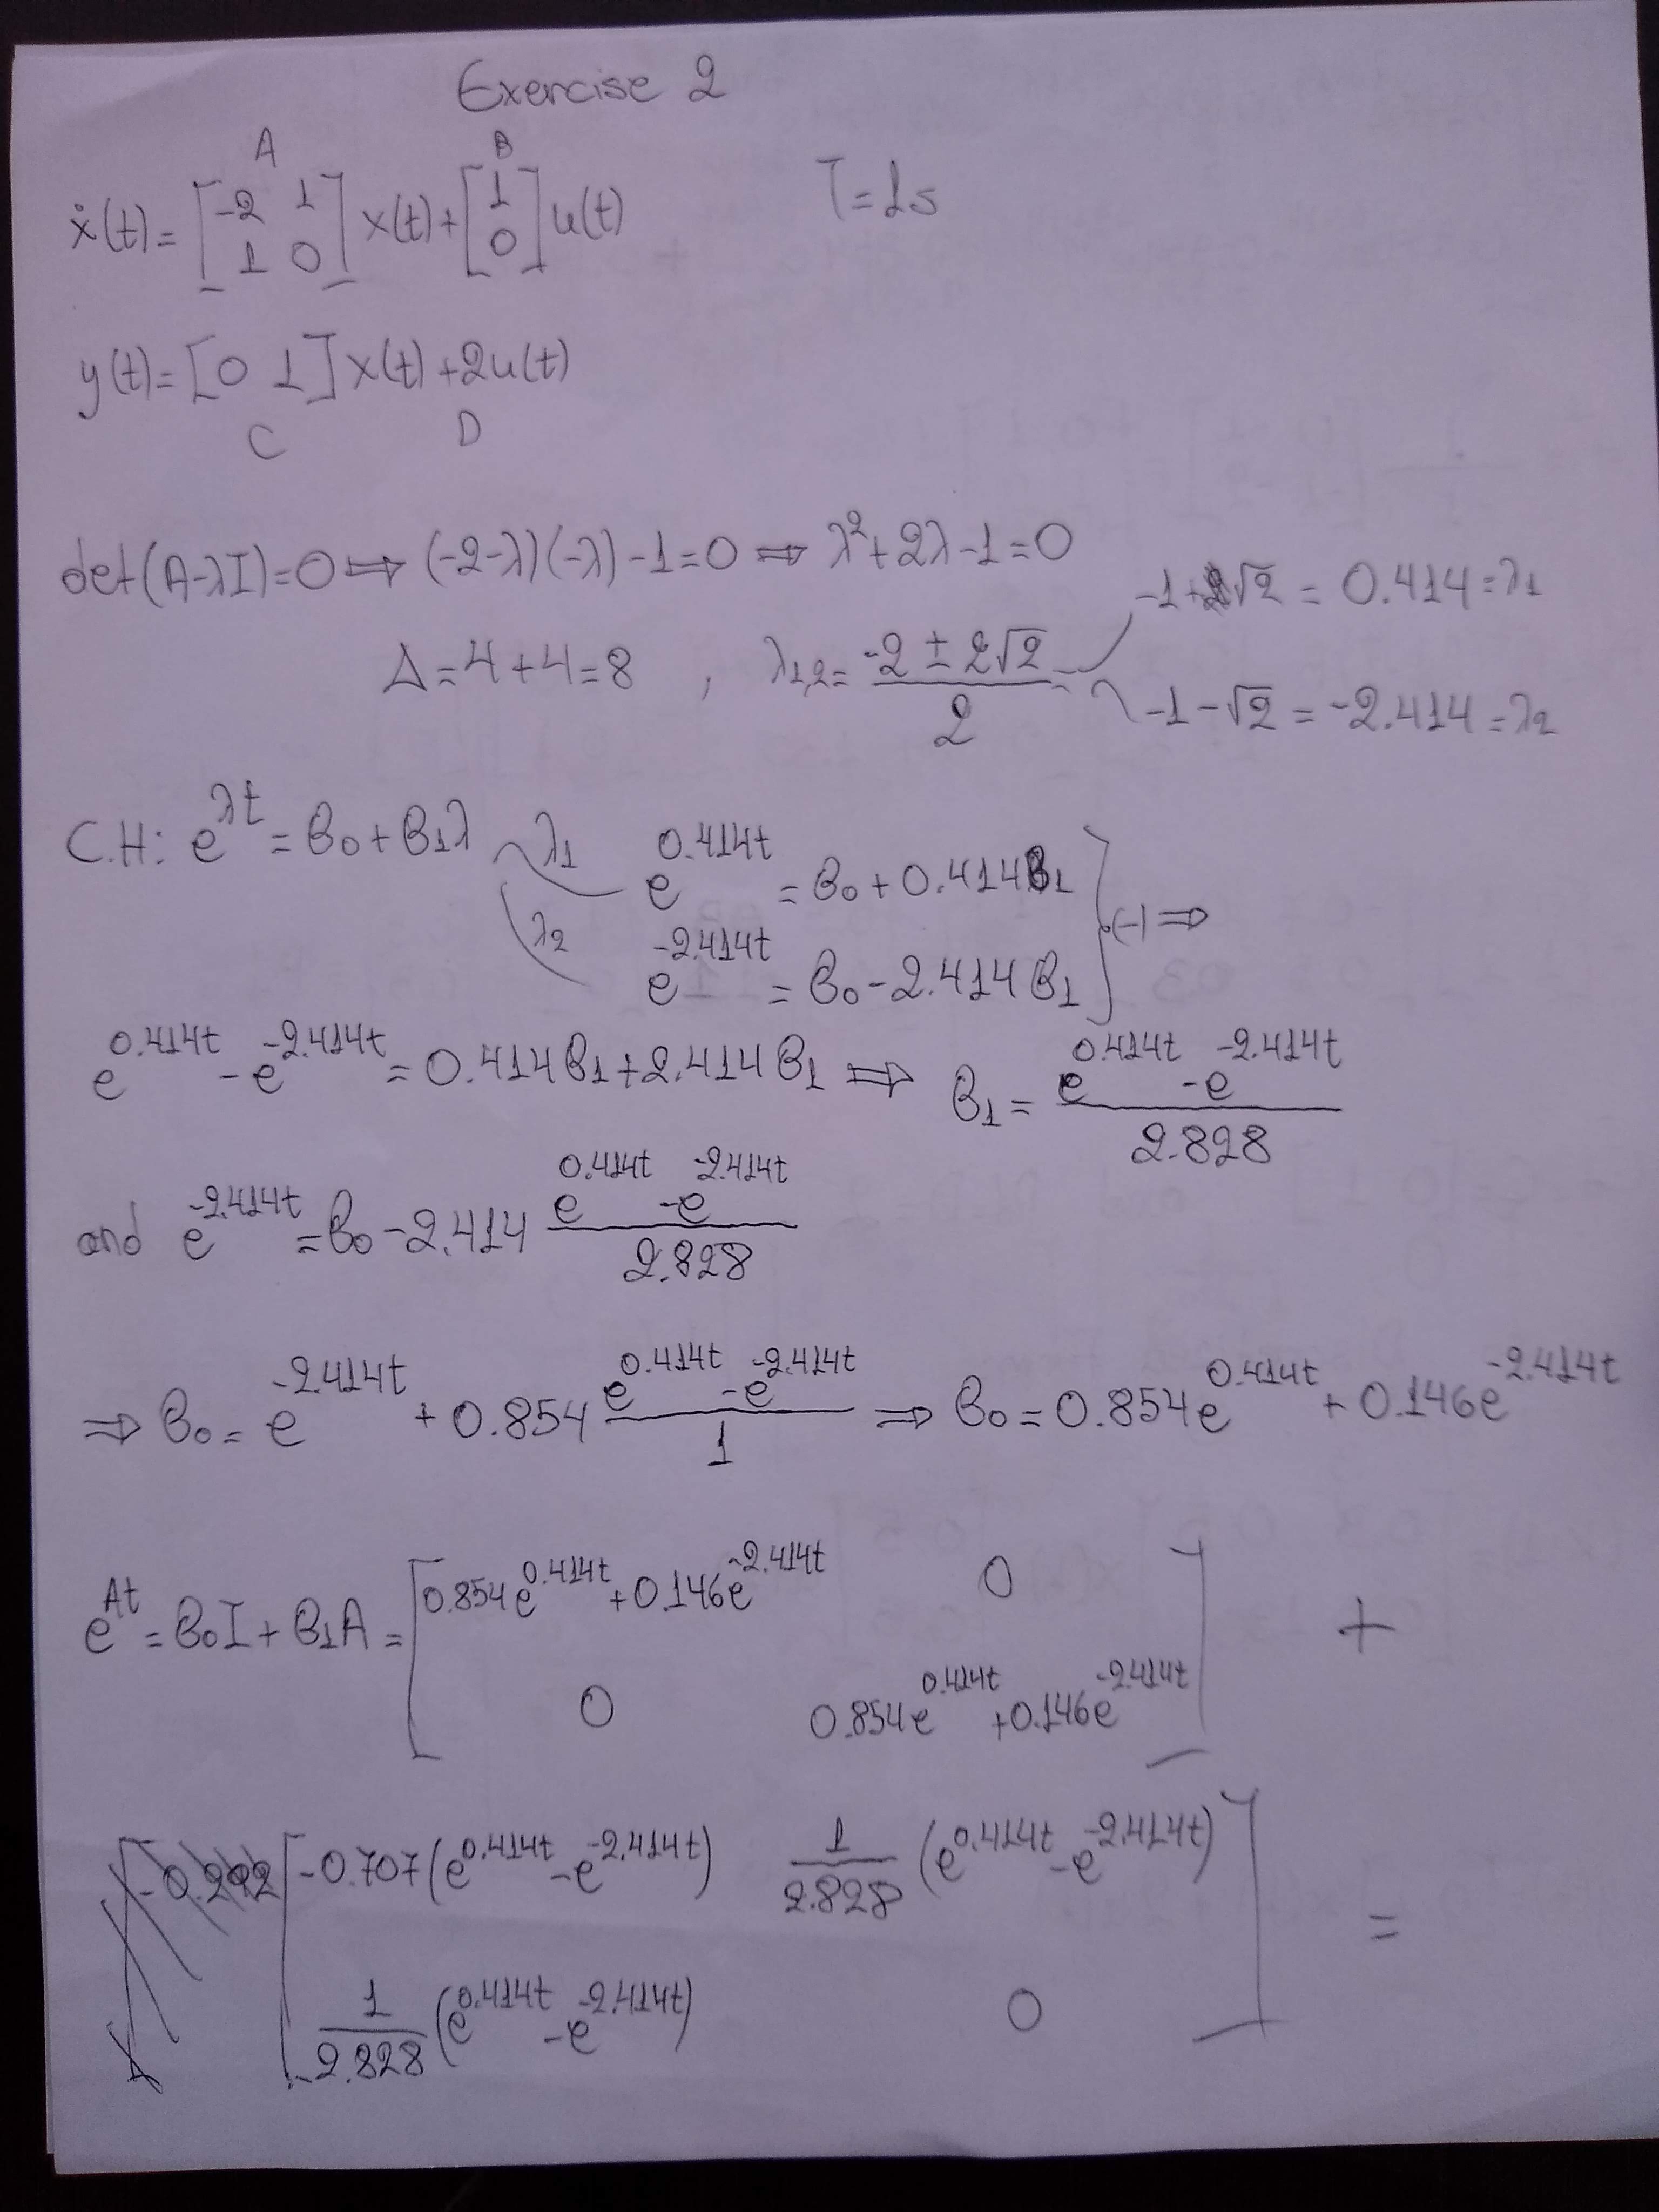 Exercise 2
A B
ẋ(t) = [-2 1; 1 0] x(t) + [1; 0] u(t) T = 1s
y(t) = [0 1] x(t) + 2u(t)
C D
det(A-λI)=0 ⇒ (-2-λ)(-λ)-1=0 ⇒ λ²+2λ-1=0
Δ=4+4=8 , λ1,2 = (-2 ± 2√2)/2
-1+√2 = 0.414 = λ1
-1-√2 = -2.414 = λ2
C.H: e^{λt} = β0+β1λ
λ1 e^{0.414t} = β0+0.414β1
λ2 e^{-2.414t} = β0-2.414β1 } (-) ⇒
e^{0.414t} - e^{-2.414t} = 0.414β1+2.414β1 ⇒ β1 = (e^{0.414t} - e^{-2.414t})/2.828
and e^{-2.414t} = β0 - 2.414 (e^{0.414t} - e^{-2.414t})/2.828
⇒ β0 = e^{-2.414t} + 0.854 (e^{0.414t} - e^{-2.414t})/1 ⇒ β0 = 0.854e^{0.414t} + 0.146e^{-2.414t}
e^{At} = β0I + β1A = [0.854e^{0.414t} + 0.146e^{-2.414t} 0; 0 0.854e^{0.414t} + 0.146e^{-2.414t}] +
[-0.707(e^{0.414t} - e^{-2.414t}) 1/2.828 (e^{0.414t} - e^{-2.414t}); 1/2.828 (e^{0.414t} - e^{-2.414t}) 0] =